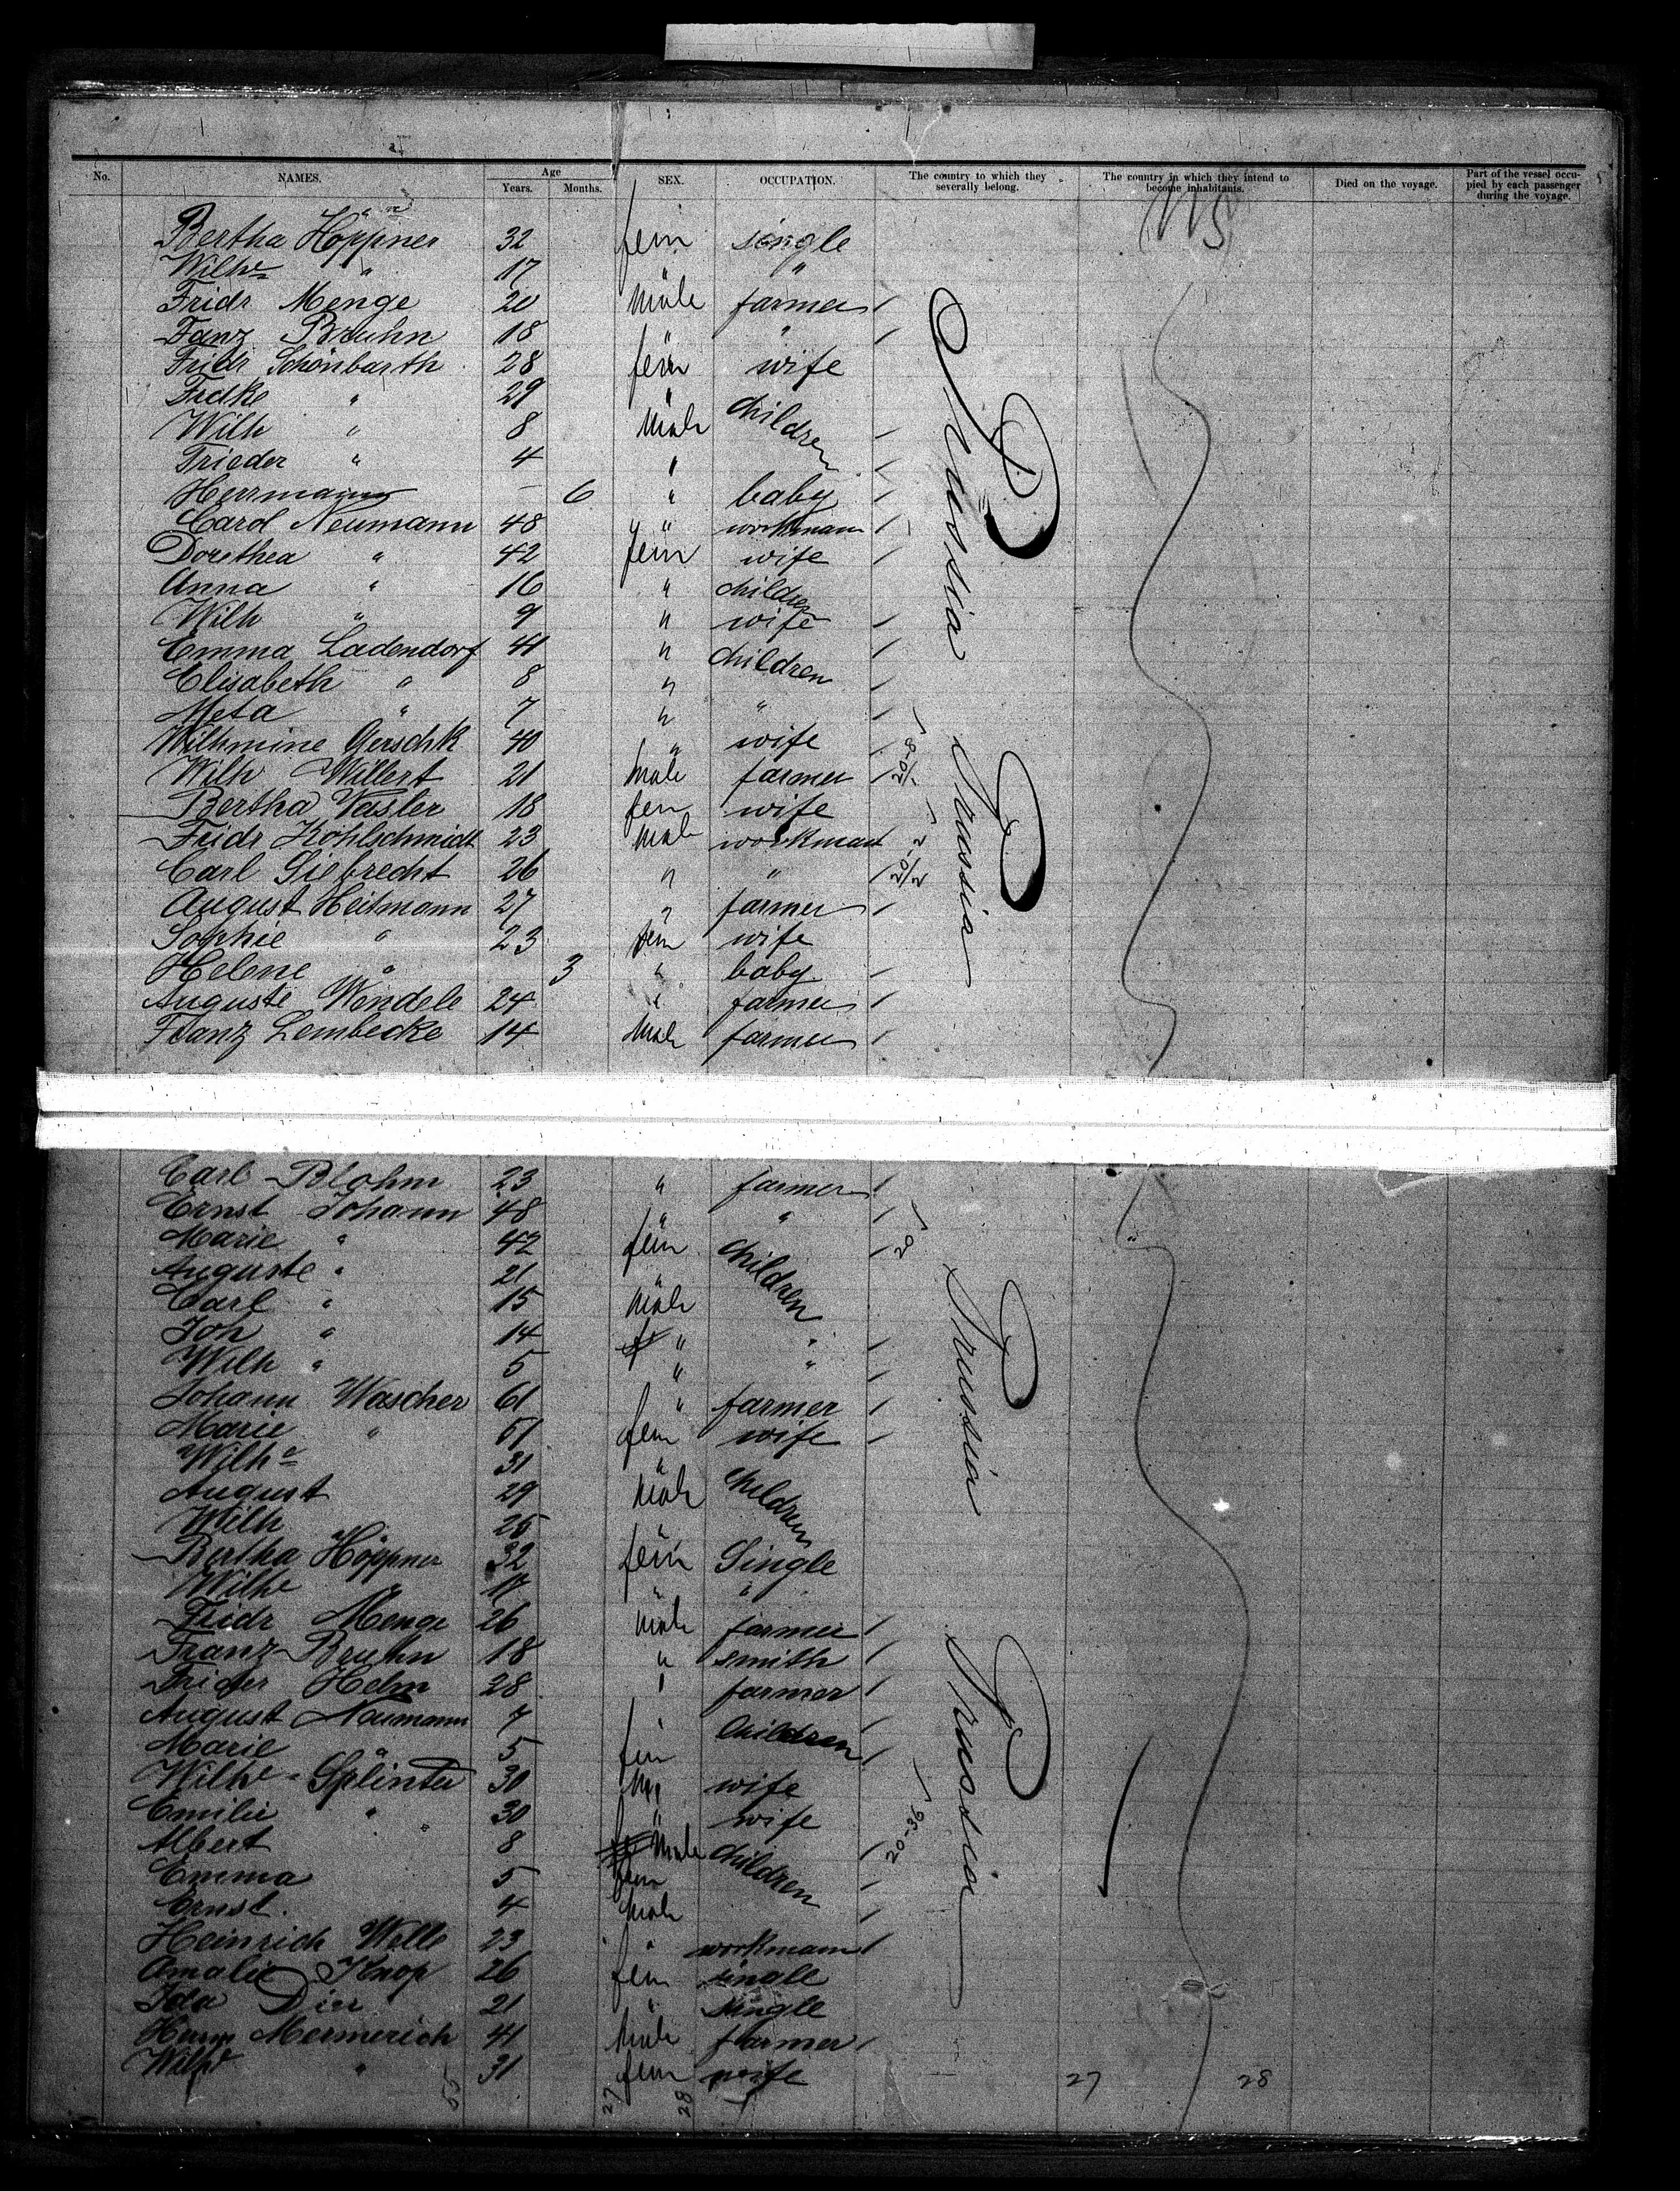 No. NAMES. Age Years. Months. SEX. OCCUPATION. The country to which they severally belong. The country in which they intend to become inhabitants. Died on the voyage. Part of the vessel occupied by each passenger during the voyage.
Bertha Höppner 32 fem single
Wilhe " 17 " "
Fridr Menge 20 male farmer
Fanz Bruhn 18 " "
Fridr Schönbarth 28 fem wife
Fridke " 29 "
Wilh " 8 male children
Frieder " 4 "
Herrmann - 6 " baby
Carol Neumann 48 " workmann
Dorethea " 42 fem wife
Anna " 16 " children
Wilh " 9 " wife
Emma Ladendorf 41 " children
Elisabeth " 8 "
Meta " 7 " "
Wilhmine Gerschk 40 " wife
Wilh Willert 21 male farmer
Bertha Vasler 18 fem wife
Fridr Kohlschmidt 23 male workman
Carl Siebrecht 26 " "
August Heitmann 27 " farmer
Sophie " 23 fem wife
Helene " 3 " baby
Auguste Wendele 24 " farmer
Franz Lembecke 14 male farmer
Prussia
Prussia
Carl Blohm 23 " farmer
Ernst Johann 48 " "
Marie " 42 fem children
Auguste " 21 "
Carl " 15 male
Joh " 14 " "
Wilh " 5 " "
Johann Wascher 61 " farmer
Marie " 61 fem wife
Wilhe 31 "
August 29 male children
Wilh 25
Bertha Höppner 32 fem Single
Wilhe " 17 " "
Fridr Menge 26 male farmer
Franz Bruhn 18 " smith
Frider Helm 28 " farmer
August Naumann 7 " Children
Marie " 5 fem
Wilhe Splinter 30 wife
Emilie " 30 " wife
Albert 8 male children
Emma 5 fem
Ernst. 4 male
Heinrich Welle 23 " workmann
Amalie Knop 26 fem single
Ida Dirr 21 " single
Herm Mermerich 41 male farmer
Wilhe " 31 fem wife
Prussia
Prussia
55 27 28 27 28